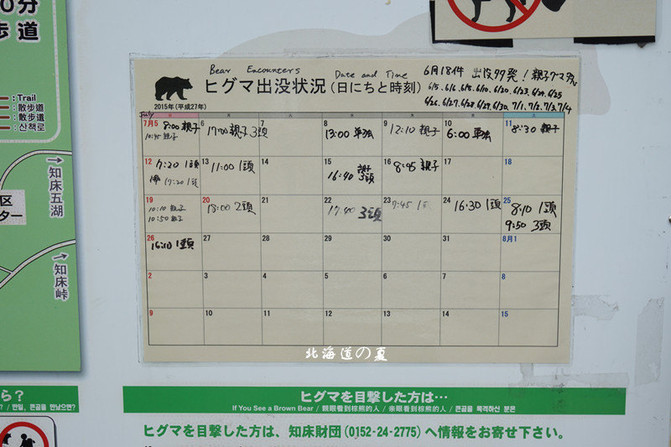 0分
歩道
Trail
散歩道
散步道
산책로
知床五湖
区
ター
知床峠
Bear Encounters Date and Time
ヒグマ出没状況(日にちと時刻)
2015年(平成27年)
6月18件 出没多発!
6/20, 6/23, 6/24, 6/25
6/26, 6/27, 6/28, 6/29, 6/30, 7/1, 7/2, 7/3, 7/4
July
7月5 6 7 8 9 10 11
8:00 親子 17:00 親子 3頭 13:00 単独 12:10 親子 6:00 単独 8:30 親子
10:45 親子
12 13 14 15 16 17 18
7:20 1頭 11:00 1頭 16:40 3頭 8:45 親子
17:20 1頭
19 20 21 22 23 24 25
10:10 親子 18:00 2頭 17:40 3頭 9:45 16:30 1頭 8:10 1頭
10:50 親子 9:50 3頭
26 27 28 29 30 31 8月1
16:10 1頭
2 3 4 5 6 7 8
9 10 11 12 13 14 15
北海道の夏
ら?
ヒグマを目撃した方は…
If You See a Brown Bear / 親眼看到棕熊的人 / 亲眼看到棕熊的人 / 큰곰을 목격하신 분은
ヒグマを目撃した方は、知床財団(0152-24-2775)へ情報をお寄せ下さい。